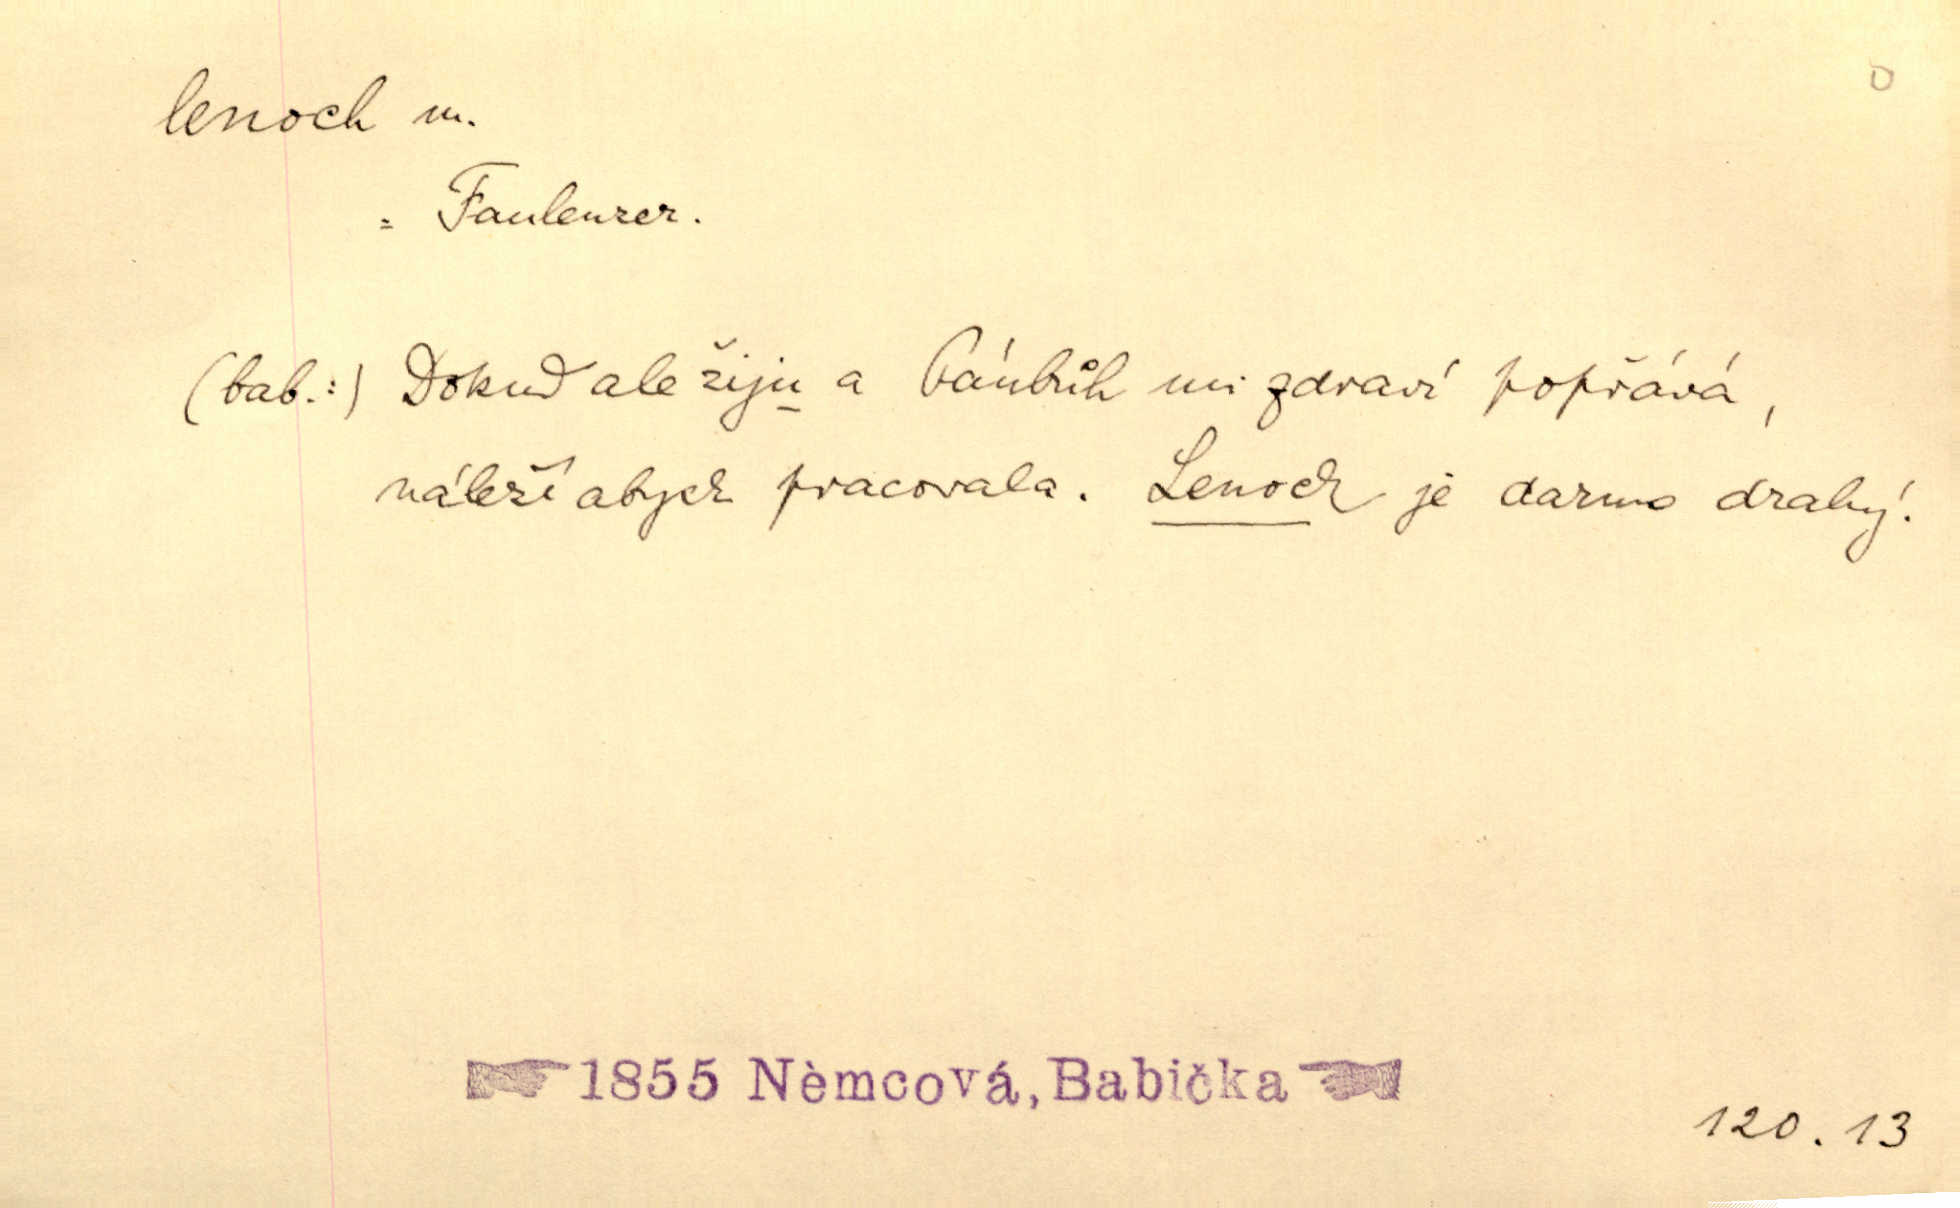 0
lenoch m.
= Faulenzer.
(bab.:) Dokud ale žiju a Pánbůh mi zdraví popřává,
náleží abych pracovala. Lenoch je darmo drahý.
☛ 1855 Nèmcová, Babička ☚
120.13